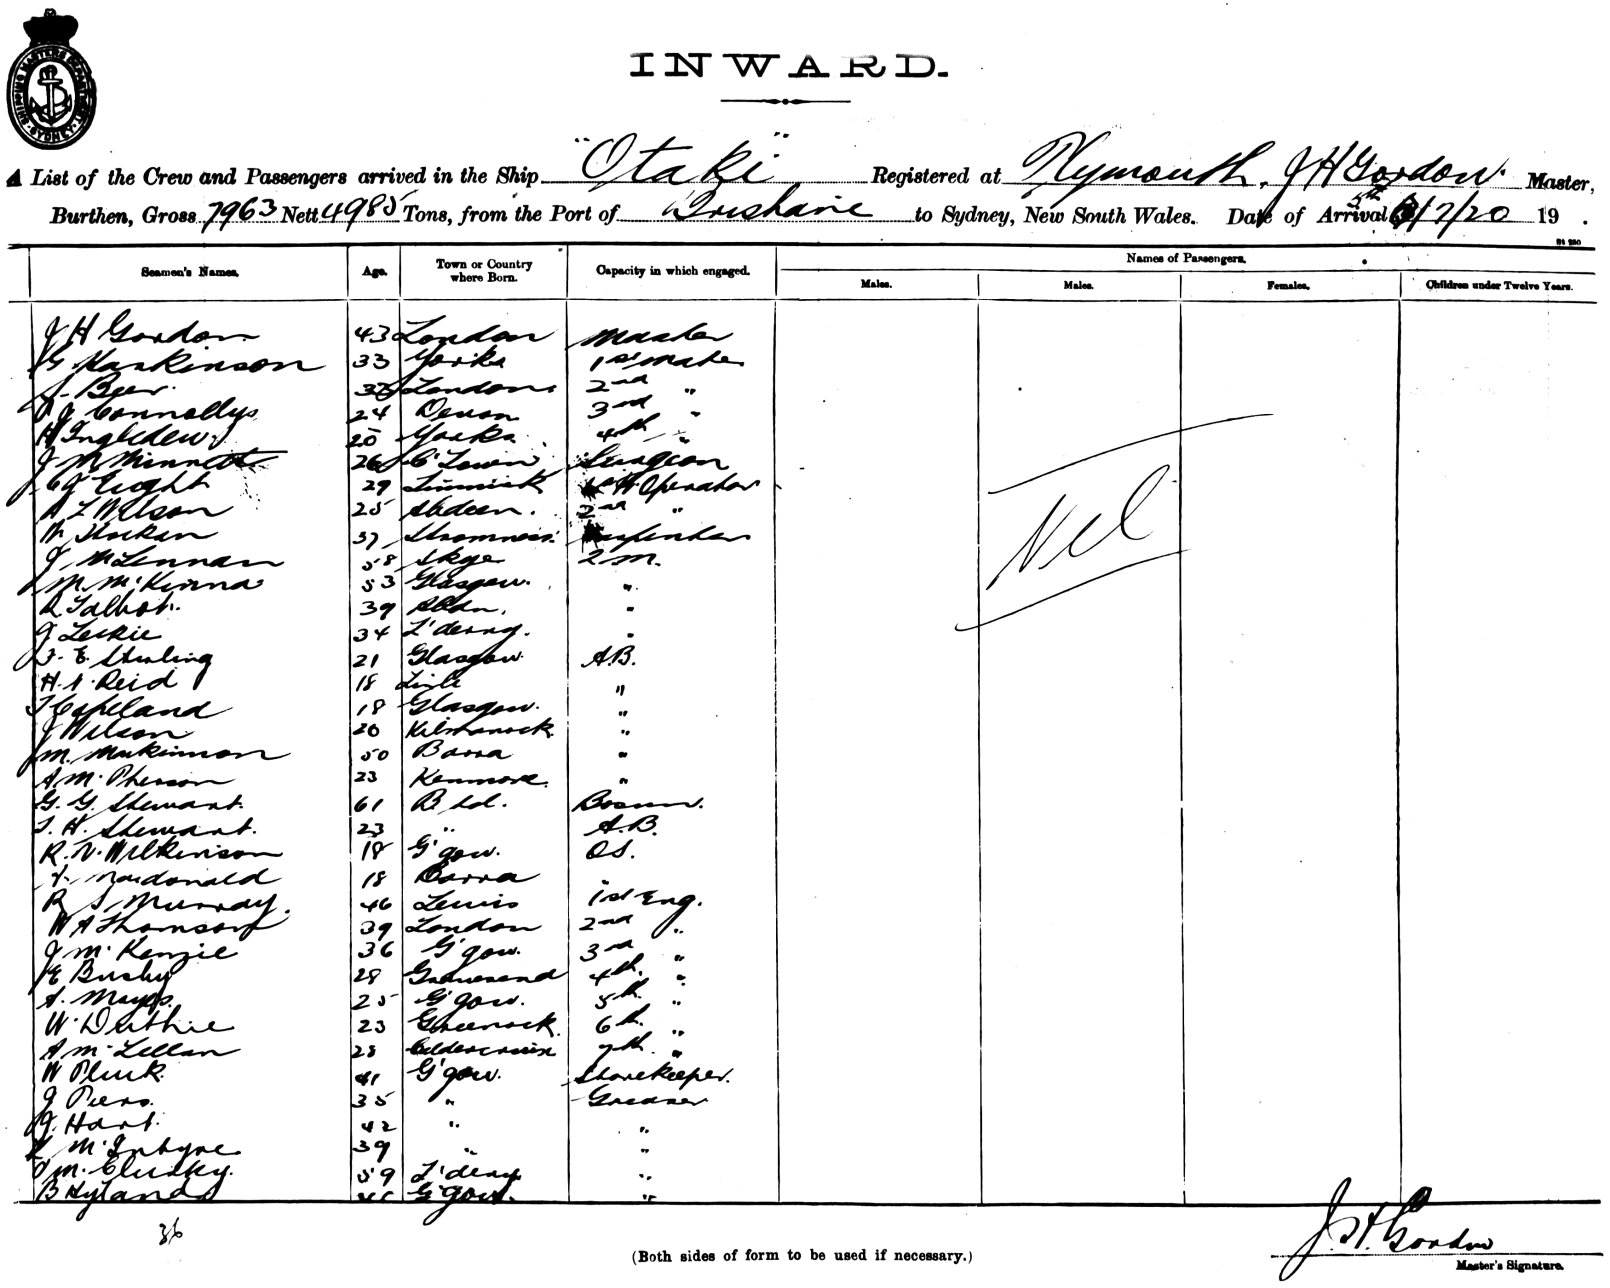 SHIPPING MASTERS DEPARTMENT SYDNEY
INWARD.
A List of the Crew and Passengers arrived in the Ship "Otaki" Registered at Plymouth, J H Gordon. Master,
Burthen, Gross 7963 Nett 4985 Tons, from the Port of Brisbane to Sydney, New South Wales. Date of Arrival 5th/7/20 19 .
Seamen's Names. Age. Town or Country where Born. Capacity in which engaged. Names of Passengers.
Males. Males. Females. Children under Twelve Years.
J H Gordon 43 London Master
G. Harkinson 33 Yorks 1st Mate
Beer London 2nd "
Connollys 24 Devon 3rd "
H Ingledew 20 Yorks 4th "
J M Minnett 26 Surgeon
29 Operator
A L Wilson 25 Abdeen. 2nd "
W 37 Stromness. Carpenter
J McLennan 58 Skye 2 M.
M. McKinna 53 Glasgow. "
R Talbot. 39 Abdn. "
J Leckie 34 L'derry. "
J. E. Sterling 21 Glasgow. A.B.
H. Reid 18 "
T Copeland 18 Glasgow. "
J Wilson 20 Kilmarnock "
M. Mackinnon 50 Barra "
A. McPherson 23 Kenmore. "
G. G. Stewart. 61 B'ld. Bosun.
J. H. Stewart. 23 " A.B.
R. N. Wilkinson 18 G'gow. O.S.
Macdonald 18 Barra "
R S Murray. 46 Lewis 1st Eng.
W A Thomson 39 London 2nd "
J McKenzie 36 G'gow. 3rd "
E Busby 28 Gravesend 4th. "
A. Mayes 25 G'gow. 5th. "
W. Duthie 23 Greenock. 6th. "
A McLellan 28 Caldercruix 7th. "
W Pluck. 41 G'gow. Storekeeper.
J Piers. 35 " Greaser
J. Hart. 42 " "
McIntyre. 39 " "
McClusky. 59 L'derry "
B Hyland G'gow. "
36
Nil
(Both sides of form to be used if necessary.)
J. H. Gordon
Master's Signature.